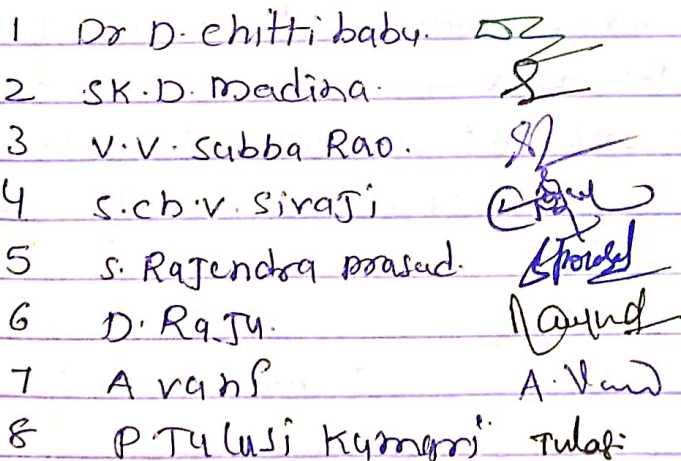 1 Dr D. chitti babu.
2 SK. D. Madina.
3 V. V. Subba Rao.
4 S. ch. V. Sivaji
5 S. Rajendra prasad. SPrasad
6 D. Raju.
7 A vani A. Vani
8 P. Tulusi Kumari Tulasi